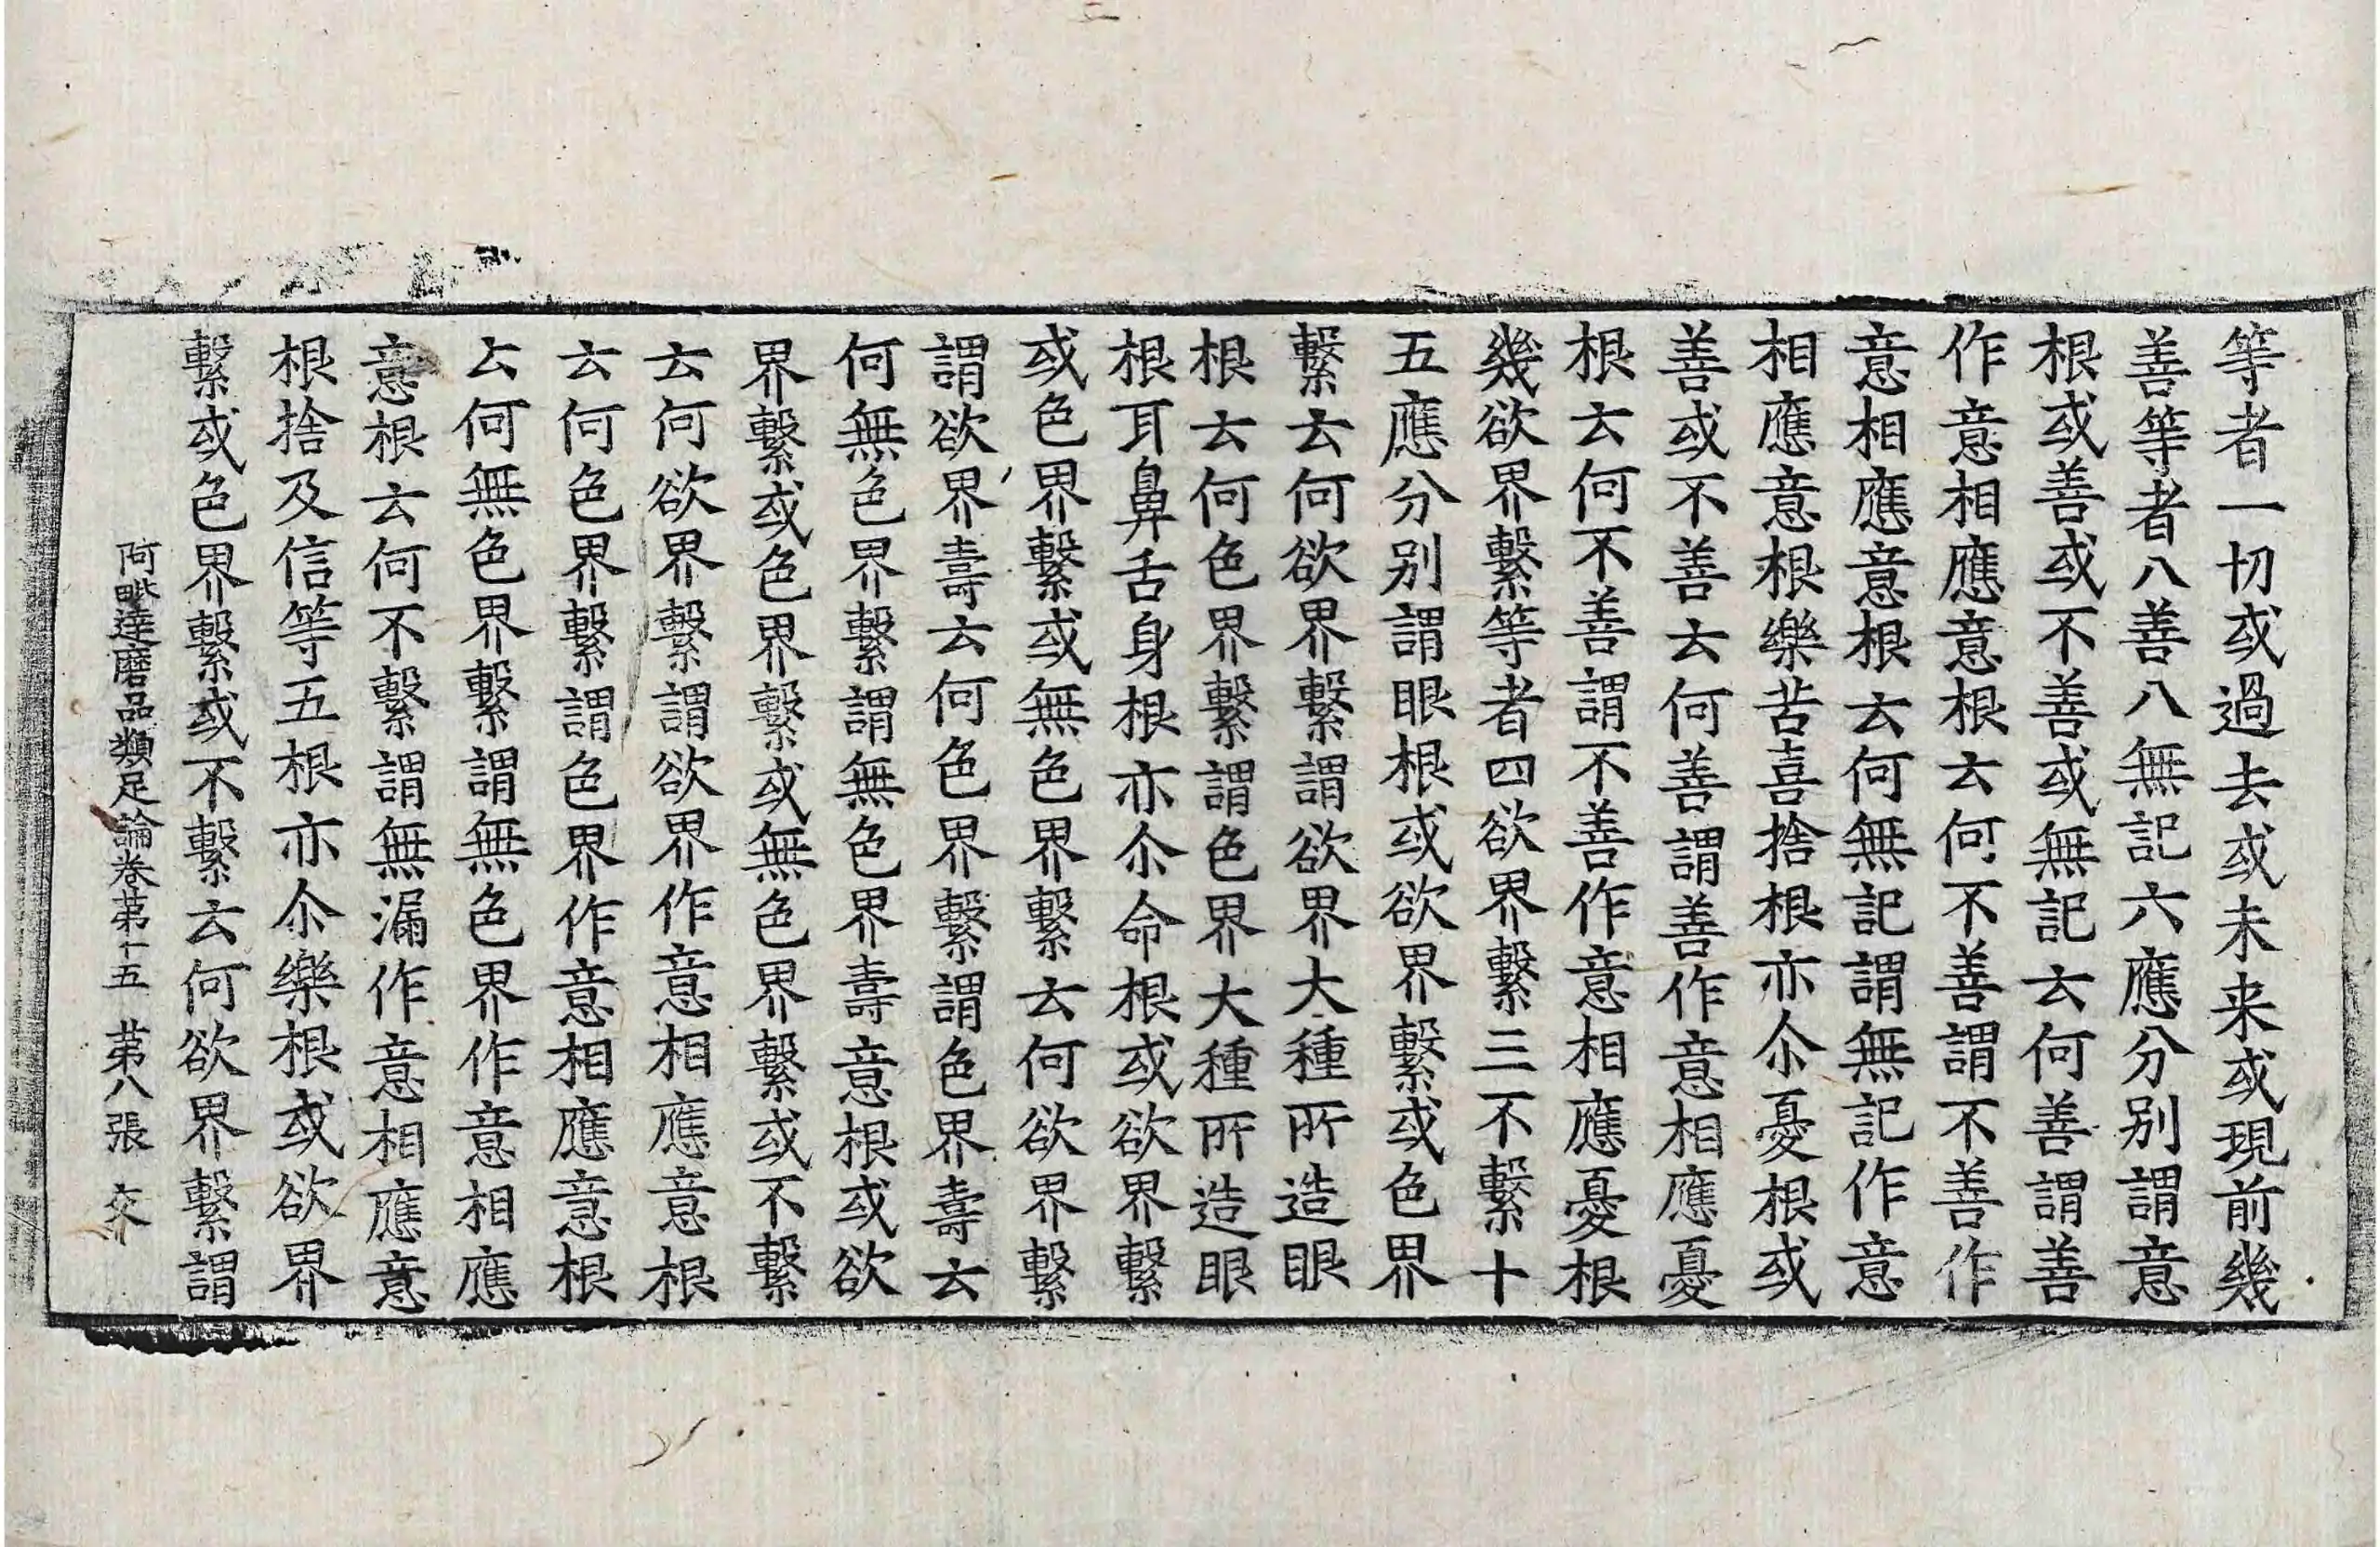 等者一切或過去或未来或現前幾
善等者八善八無記六應分别謂意
根或善或不善或無記云何善謂善
作意相應意根云何不善謂不善作
意相應意根云何無記謂無記作意
相應意根樂苦喜捨根亦尒憂根或
善或不善云何善謂善作意相應憂
根云何不善謂不善作意相應憂根
幾欲界繫等者四欲界繫三不繫十
五應分别謂眼根或欲界繫或色界
繫云何欲界繫謂欲界大種所造眼
根云何色界繫謂色界大種所造眼
根耳鼻舌身根亦尒命根或欲界繫
或色界繫或無色界繫云何欲界繫
謂欲界壽云何色界繫謂色界壽云
何無色界繫謂無色界壽意根或欲
界繫或色界繫或無色界繫或不繫
云何欲界繫謂欲界作意相應意根
云何色界繫謂色界作意相應意根
云何無色界繫謂無色界作意相應
意根云何不繫謂無漏作意相應意
根捨及信等五根亦尒樂根或欲界
繫或色界繫或不繫云何欲界繫謂
阿毗達磨品類足論卷苐十五 苐八張 交